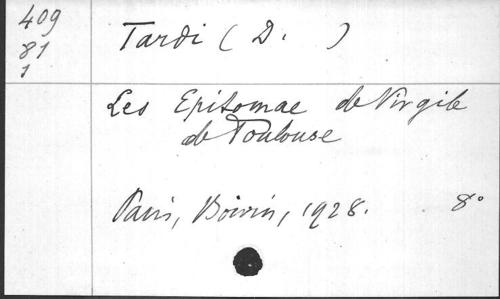 409
81
1
Tardi (D. )
Les Epitomae de Virgile
de Toulouse
Paris, Boivin, 1928. 8°